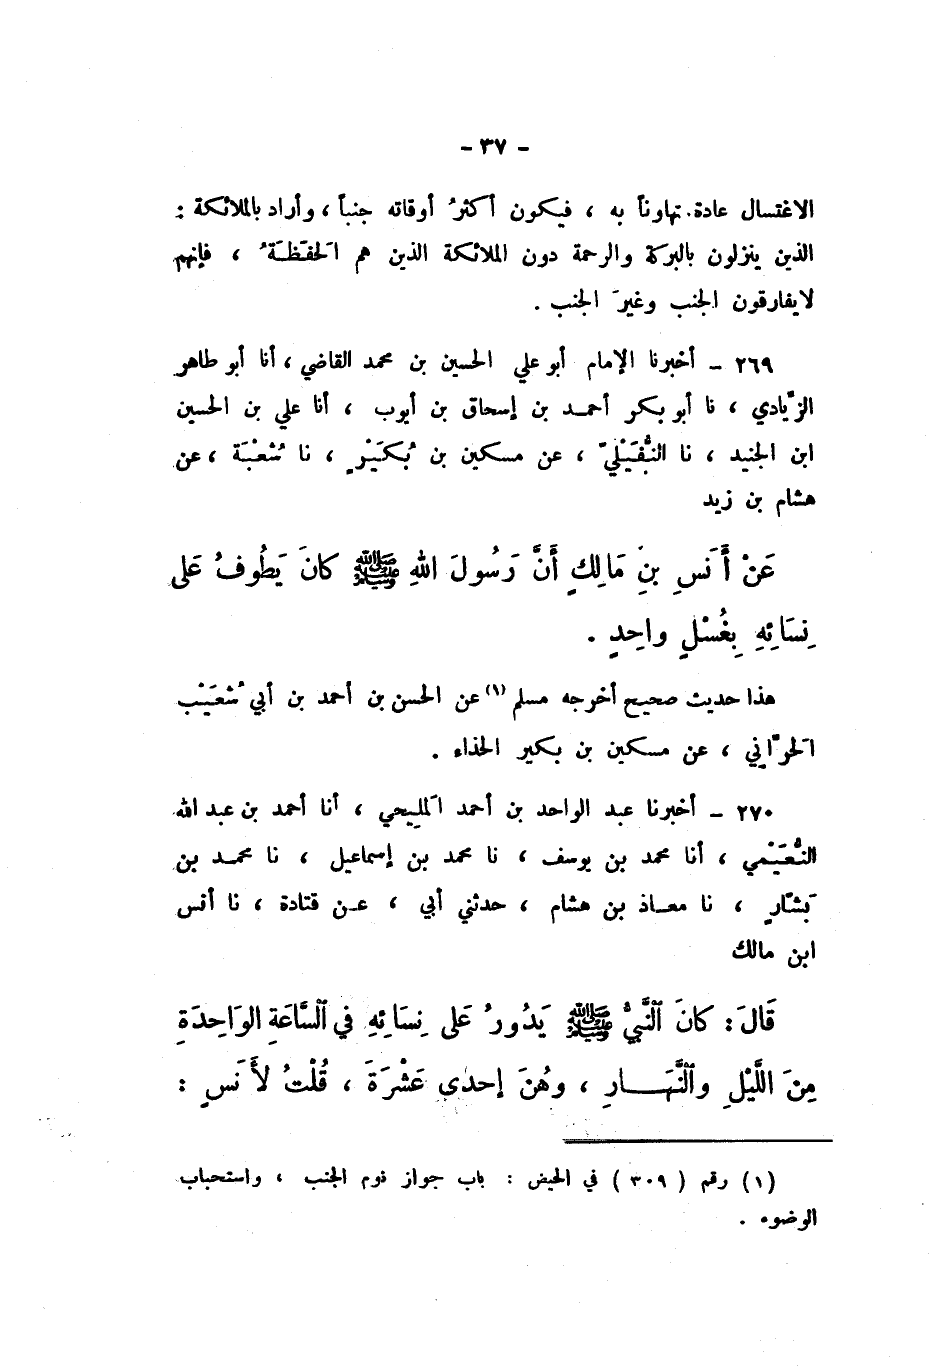 - ٣٧ -
الاغتسال عادة تهاوناً به ، فيكون أكثرُ أوقاته جنباً ، وأراد بالملائكة :
الذين ينزلون بالبركة والرحمة دون الملائكة الذين هم الحَفَظَةُ ، فإنهم
لايفارقون الجنب وغيرَ الجنب .
٢٦٩ - أخبرنا الإمام أبو علي الحسين بن محمد القاضي ، أنا أبو طاهر
الزّيادي ، نا أبو بكر أحمد بن إسحاق بن أيوب ، أنا علي بن الحسين
ابن الجنيد ، نا النُّفَيْليّ ، عن مسكين بن بُكَيْرٍ ، نا شُعْبَة ، عن
هشام بن زيد
عَنْ أَنَسِ بنِ مَالِكٍ أَنَّ رَسُولَ اللهِ ﷺ كانَ يَطُوفُ عَلى
نِسَائِهِ بِغُسْلٍ واحِدٍ .
هذا حديث صحيح أخرجه مسلم (١) عن الحسن بن أحمد بن أبي شُعَيْب
الحَرّاني ، عن مسكين بن بكير الحذاء .
٢٧٠ - أخبرنا عبد الواحد بن أحمد المَلِيحي ، أنا أحمد بن عبد الله
النُّعَيْمي ، أنا محمد بن يوسف ، نا محمد بن إسماعيل ، نا محمد بن
بَشّارٍ ، نا معاذ بن هشام ، حدثني أبي ، عن قتادة ، نا أنس
ابن مالك
قَالَ : كانَ ٱلنَّبِيُّ ﷺ يَدُورُ عَلى نِسَائِهِ في ٱلسَّاعَةِ الوَاحِدَةِ
مِنَ اللَّيْلِ وٱلنَّهَارِ ، وهُنَ إحدَى عَشْرَةَ ، قُلْتُ لأَنَسٍ :
(١) رقم ( ٣٠٩ ) في الحيض : باب جواز نوم الجنب ، واستحباب
الوضوء .